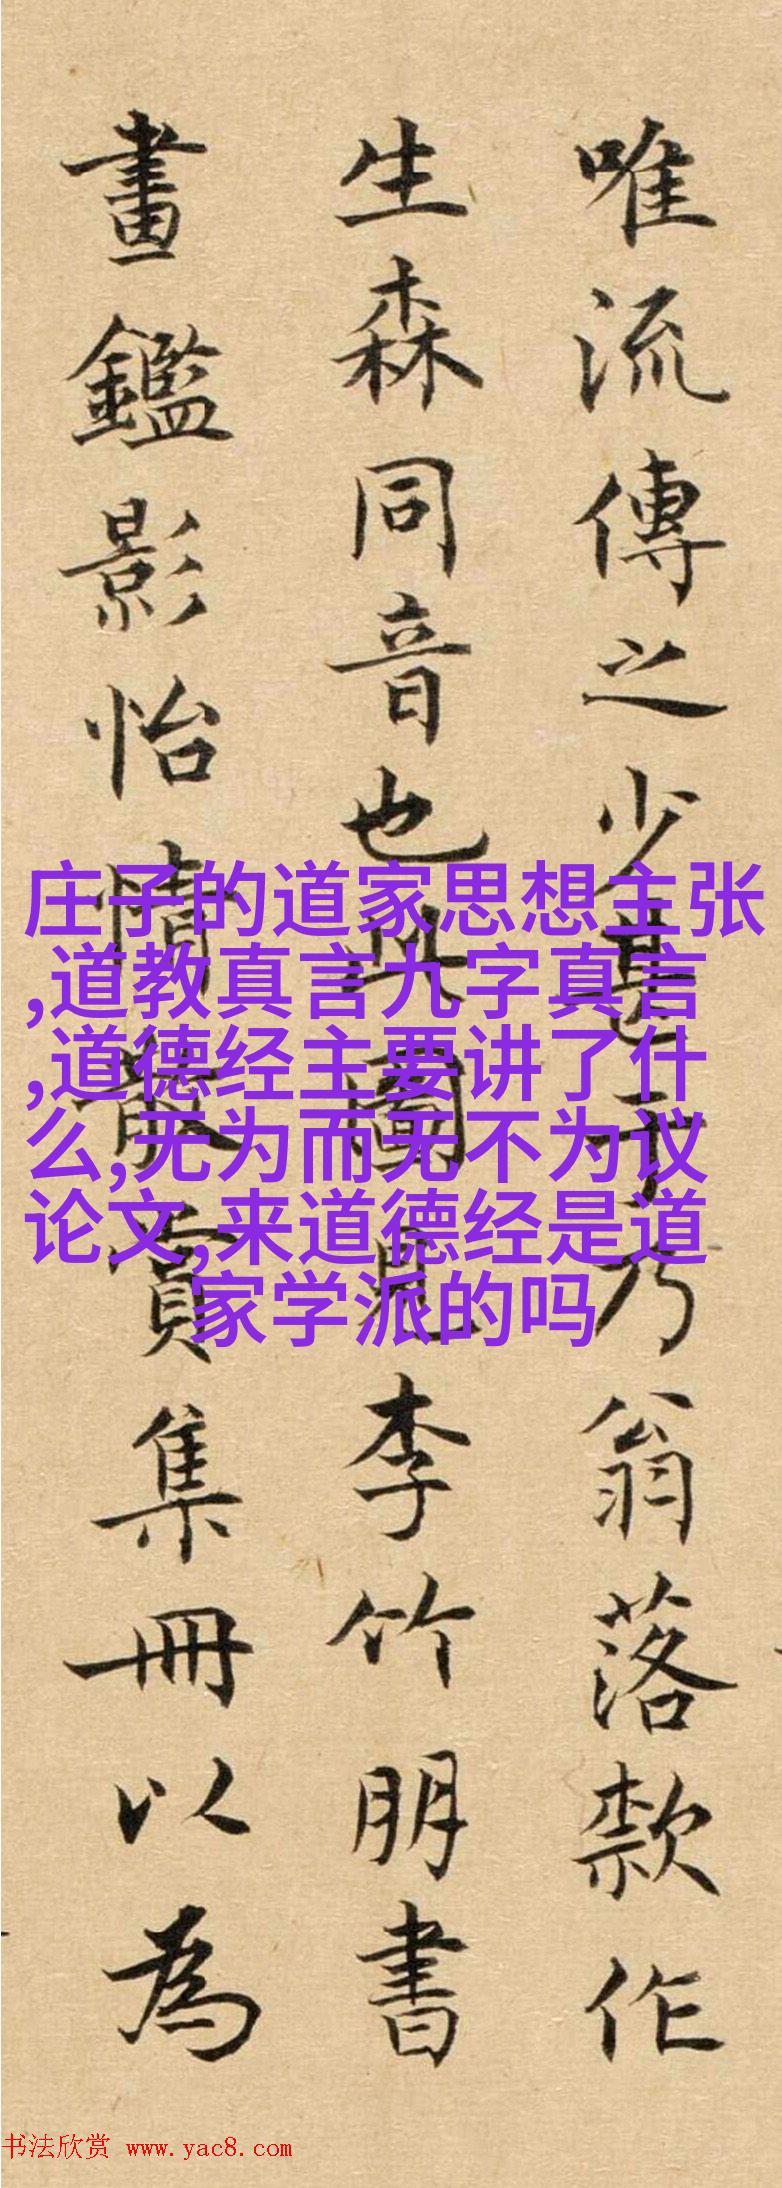 唯流傳之少甚子乃翁落款作
生森同音也此圖見李竹朋書
畫鑑影怡情賞集冊以為
庄子的道家思想主张
,道教真言九字真言
,道德经主要讲了什
么,无为而无不为议
论文,来道德经是道
家学派的吗
书法欣赏 www.yac8.com